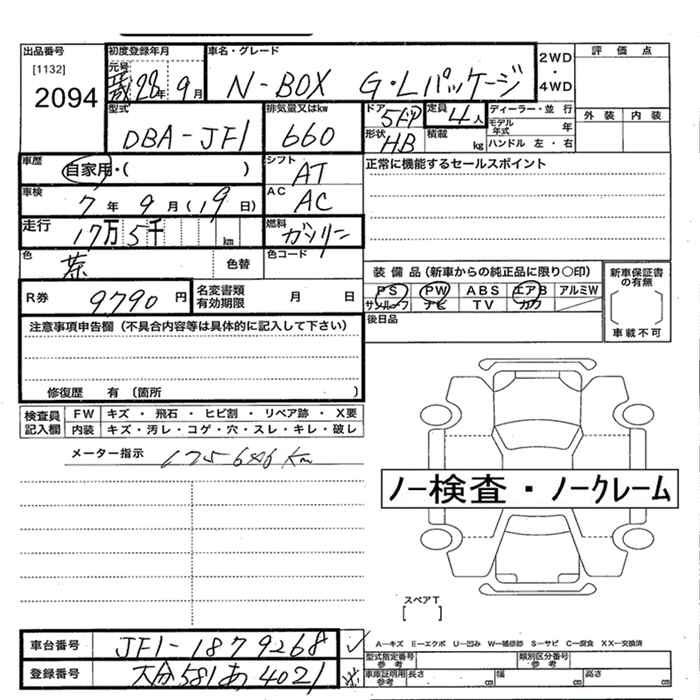 出品番号 初度登録年月 車名・グレード 2WD・4WD 評価点
[1132] 元号 28年 9月 N-BOX G・Lパッケージ
2094 型式 DBA-JF1 排気量又はkw 660 ドア 5ドア 定員 4人 ディーラー・並行 外装 内装
形状 HB 積載 kg モデル年式 年 ハンドル 左・右
車歴 自家用・( ) シフト AT 正常に機能するセールスポイント
車検 7年 9月(19日) AC AC
走行 17万 5千 km 燃料 ガソリン
色 茶 色替 色コード 装備品(新車からの純正品に限り○印) 新車保証書の有無
R券 9790円 名変書類有効期限 月 日 PS PW ABS エアB アルミW
サンルーフ ナビ TV カワ
後日品 車載不可
注意事項申告欄(不具合内容等は具体的に記入して下さい)
修復歴 有 (箇所 )
検査員記入欄 FW キズ・飛石・ヒビ割・リペア跡・X要
内装 キズ・汚レ・コゲ・穴・スレ・キレ・破レ
メーター指示 175686Km
ノー検査・ノークレーム
スペアT
[ ]
A-キズ E-エクボ U-凹み W-補修跡 S-サビ C-腐食 XX-交換済
車台番号 JF1-1879268 型式指定番号 参考 類別区分番号 参考
登録番号 大分581あ4021 車庫証明用参考 長さ cm 幅 cm 高さ cm